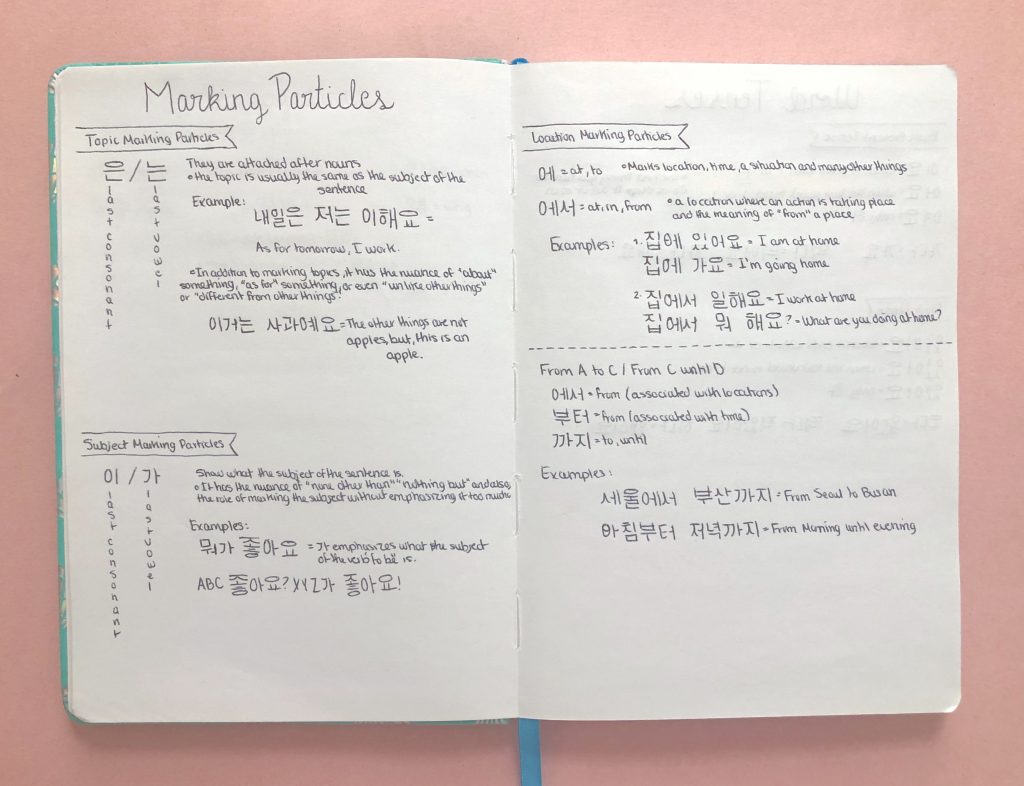 Marking Particles
Topic Marking Particles
은 / 는
last consonant
last vowel
They are attached after nouns
• the topic is usually the same as the subject of the
sentence
Example:
내일은 저는 이해요 =
As for tomorrow, I work.
• In addition to marking topics, it has the nuance of "about"
something, "as for" something, or even "unlike other things"
or "different from other things".
이거는 사과예요 = The other things are not
apples, but, this is an
apple.
Subject Marking Particles
이 / 가
last consonant
last vowel
Show what the subject of the sentence is.
• It has the nuance of "none other than" "nothing but" and also
the role of marking the subject without emphasizing it too much.
Examples:
뭐가 좋아요 = 가 emphasizes what the subject
of the verb 'to be' is.
ABC 좋아요? XYZ가 좋아요!
Location Marking Particles
에 = at, to • Marks location, time, a situation and many other things
에서 = at, in, from • a location where an action is taking place
and the meaning of "from" a place
Examples: 1. 집에 있어요 = I am at home
집에 가요 = I'm going home
2. 집에서 일해요 = I work at home
집에서 뭐 해요? = What are you doing at home?
From A to C / From C until D
에서 = from (associated with locations)
부터 = from (associated with time)
까지 = to, until
Examples:
세울에서 부산까지 = From Seoul to Busan
아침부터 저녁까지 = From Morning until evening